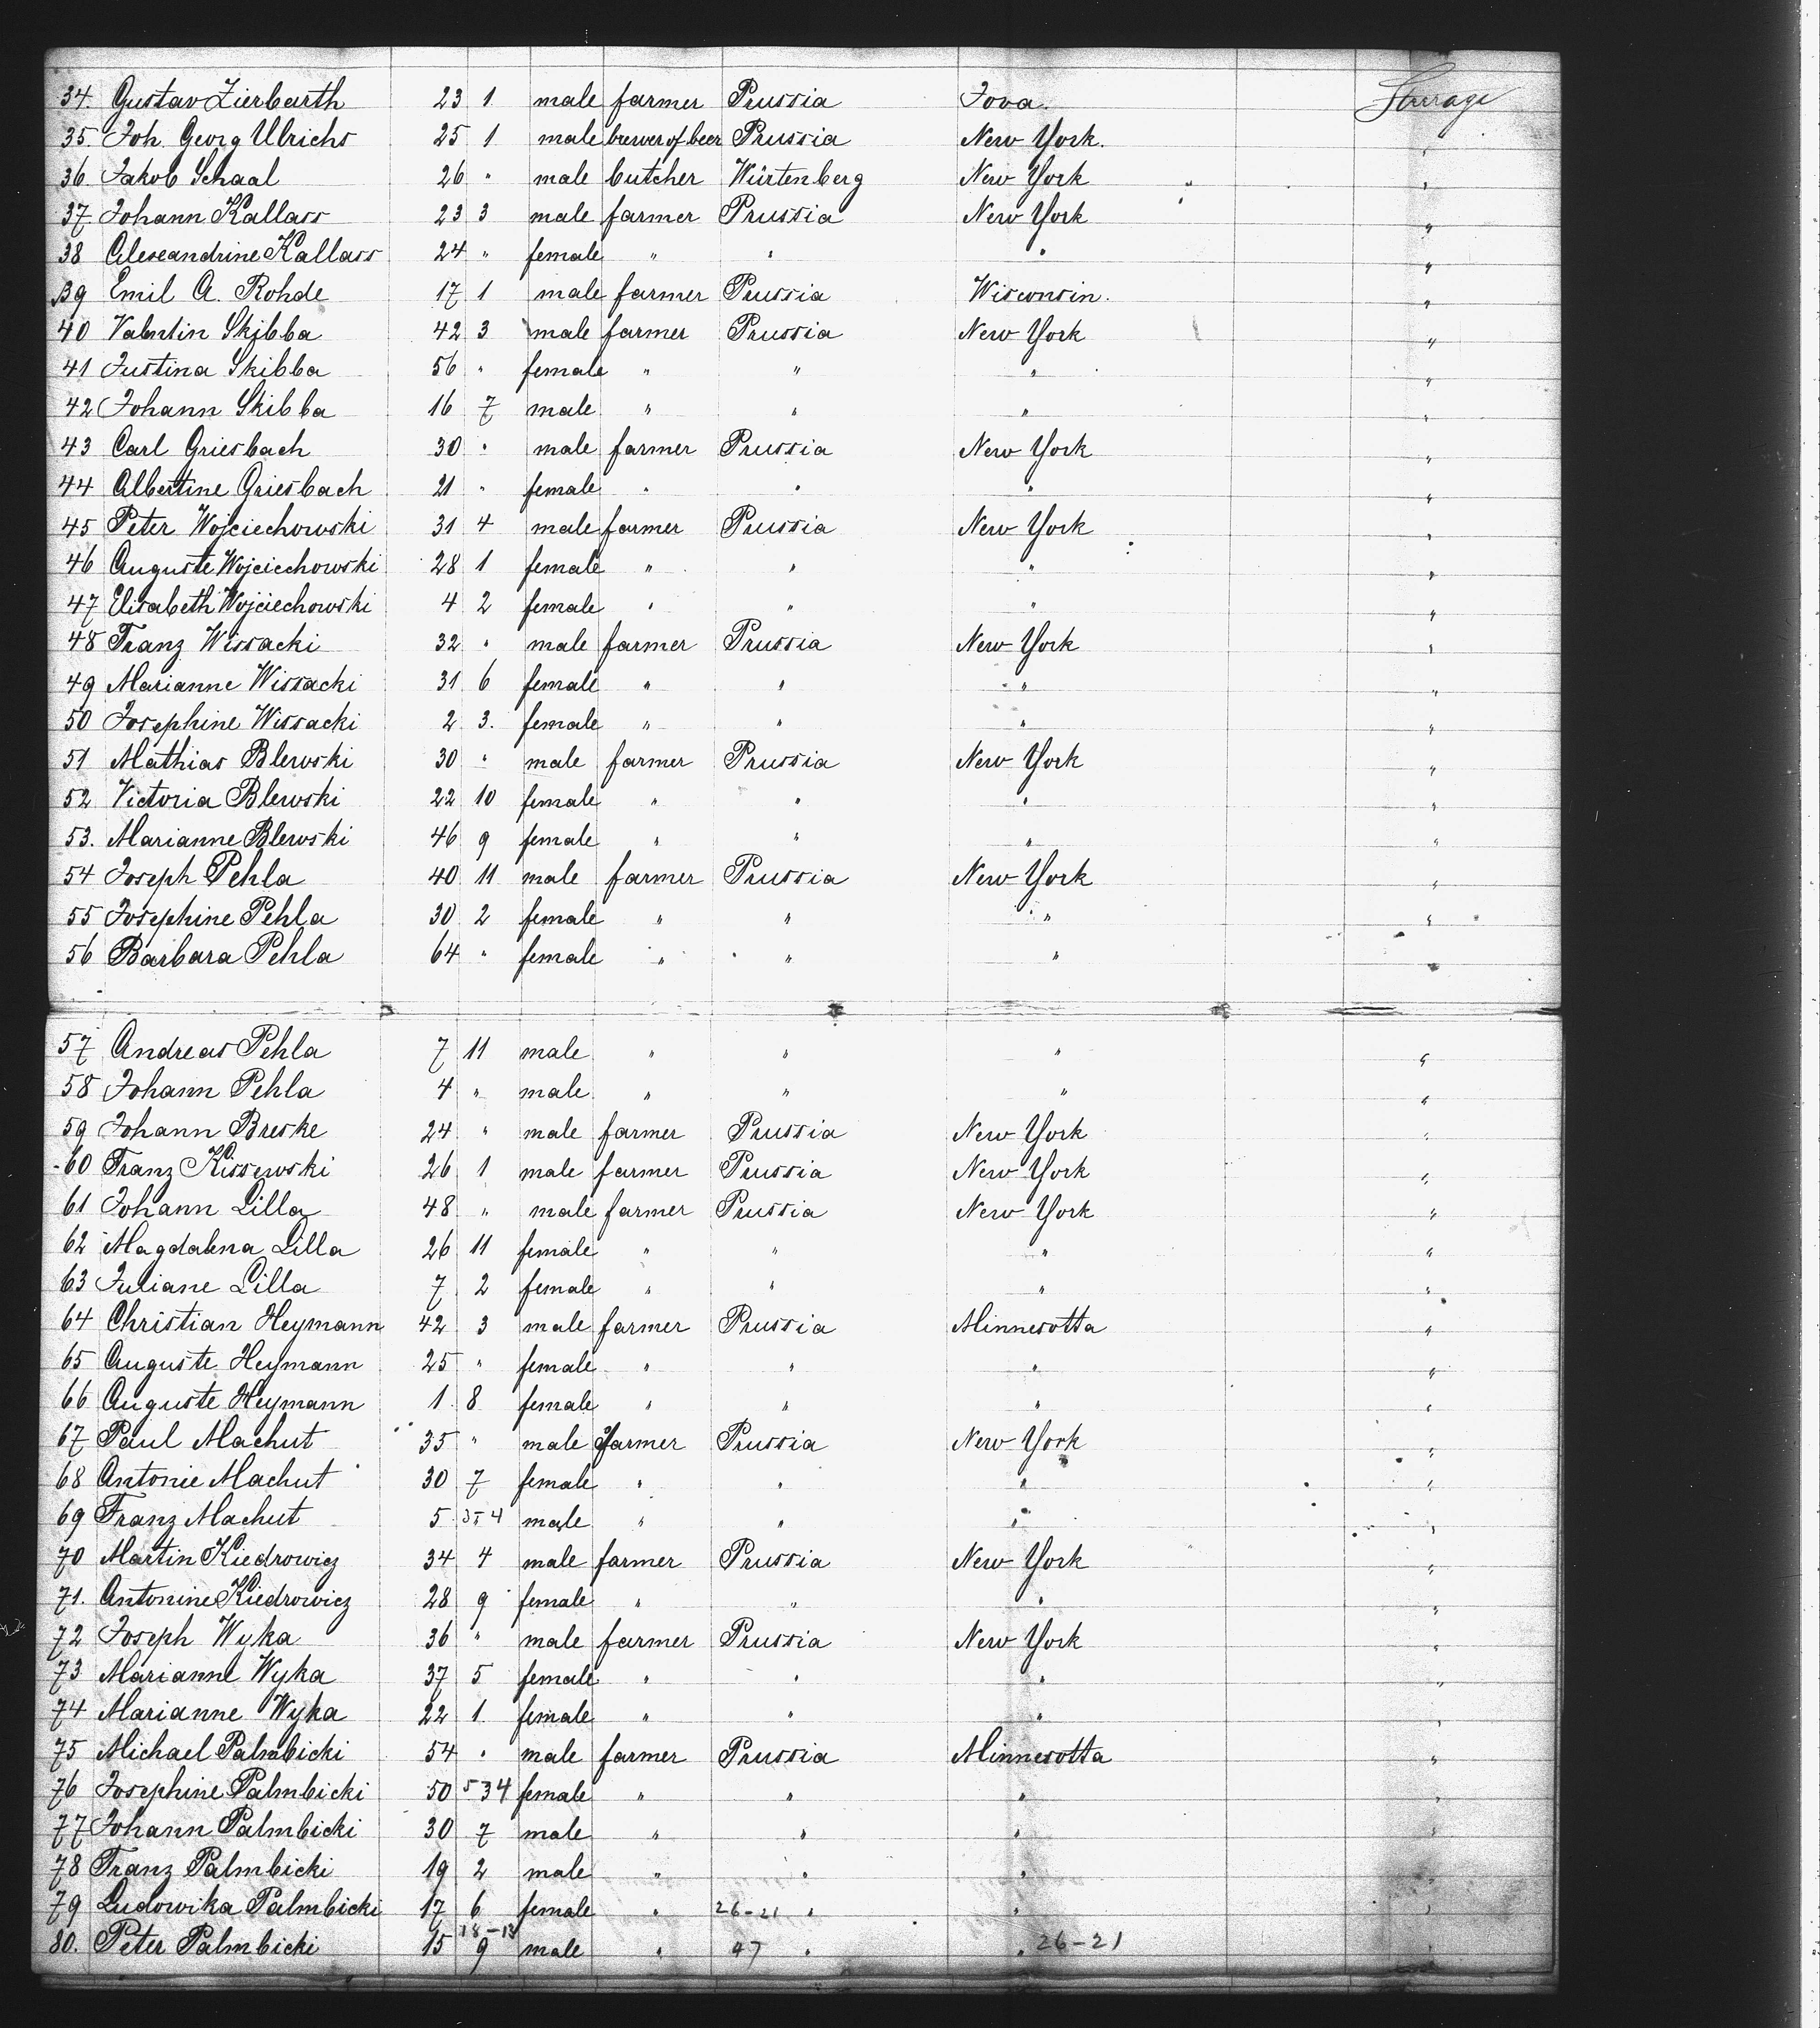 34. Gustav Zierbarth 23 1 male farmer Prussia Iova. Steerage
35. Joh. Georg Ulrichs 25 1 male brewer of beer Prussia New York. "
36. Jakob Schaal 26 " male butcher Würtenberg New York "
37 Johann Kallass 23 3 male farmer Prussia New York "
38 Alexeandrine Kallass 24 " female " " " "
39 Emil A. Rohde 17 1 male farmer Prussia Wisconsin. "
40 Valentin Skibba 42 3 male farmer Prussia New York "
41 Justina Skibba 56 " female " " " "
42 Johann Skibba 16 7 male " " " "
43 Carl Griesbach 30 " male farmer Prussia New York "
44 Albertine Griesbach 21 " female " " " "
45 Peter Wojciechowski 31 4 male farmer Prussia New York "
46 Auguste Wojciechowski 28 1 female " " " "
47 Elisabeth Wojciechowski 4 2 female " " " "
48 Franz Wissacki 32 " male farmer Prussia New York "
49 Marianne Wissacki 31 6 female " " " "
50 Josephine Wissacki 2 3. female " " " "
51 Mathias Blewski 30 " male farmer Prussia New York "
52 Victoria Blewski 22 10 female " " " "
53. Marianne Blewski 46 9 female " " " "
54 Joseph Pehla 40 11 male farmer Prussia New York "
55 Josephine Pehla 30 2 female " " " "
56 Barbara Pehla 64 " female " " " "
57 Andreas Pehla 7 11 male " " " "
58 Johann Pehla 4 " male " " " "
59 Johann Breske 24 " male farmer Prussia New York "
60 Franz Kissewski 26 1 male farmer Prussia New York "
61 Johann Lilla 48 " male farmer Prussia New York "
62 Magdalena Lilla 26 11 female " " " "
63 Juliane Lilla 7 2 female " " " "
64 Christian Heymann 42 3 male farmer Prussia Minnesotta "
65 Auguste Heymann 25 " female " " " "
66 Auguste Heymann 1 8 female " " " "
67 Paul Machut 35 " male farmer Prussia New York "
68 Antonie Machut 30 7 female " " " "
69 Franz Machut 5 4 male " " " "
70 Martin Kiedrowicz 34 4 male farmer Prussia New York "
71. Antonine Kiedrowicz 28 9 female " " " "
72 Joseph Wyka 36 " male farmer Prussia New York "
73 Marianne Wyka 37 5 female " " " "
74 Marianne Wyka 22 1 female " " " "
75 Michael Palmbicki 54 " male farmer Prussia Minnesotta "
76 Josephine Palmbicki 50 534 female " " " "
77 Johann Palmbicki 30 7 male " " " "
78 Franz Palmbicki 19 2 male " " " "
79 Ludowika Palmbicki 17 6 female " 26-21 " " "
80. Peter Palmbicki 15 9 male " 47 " " 26-21 "